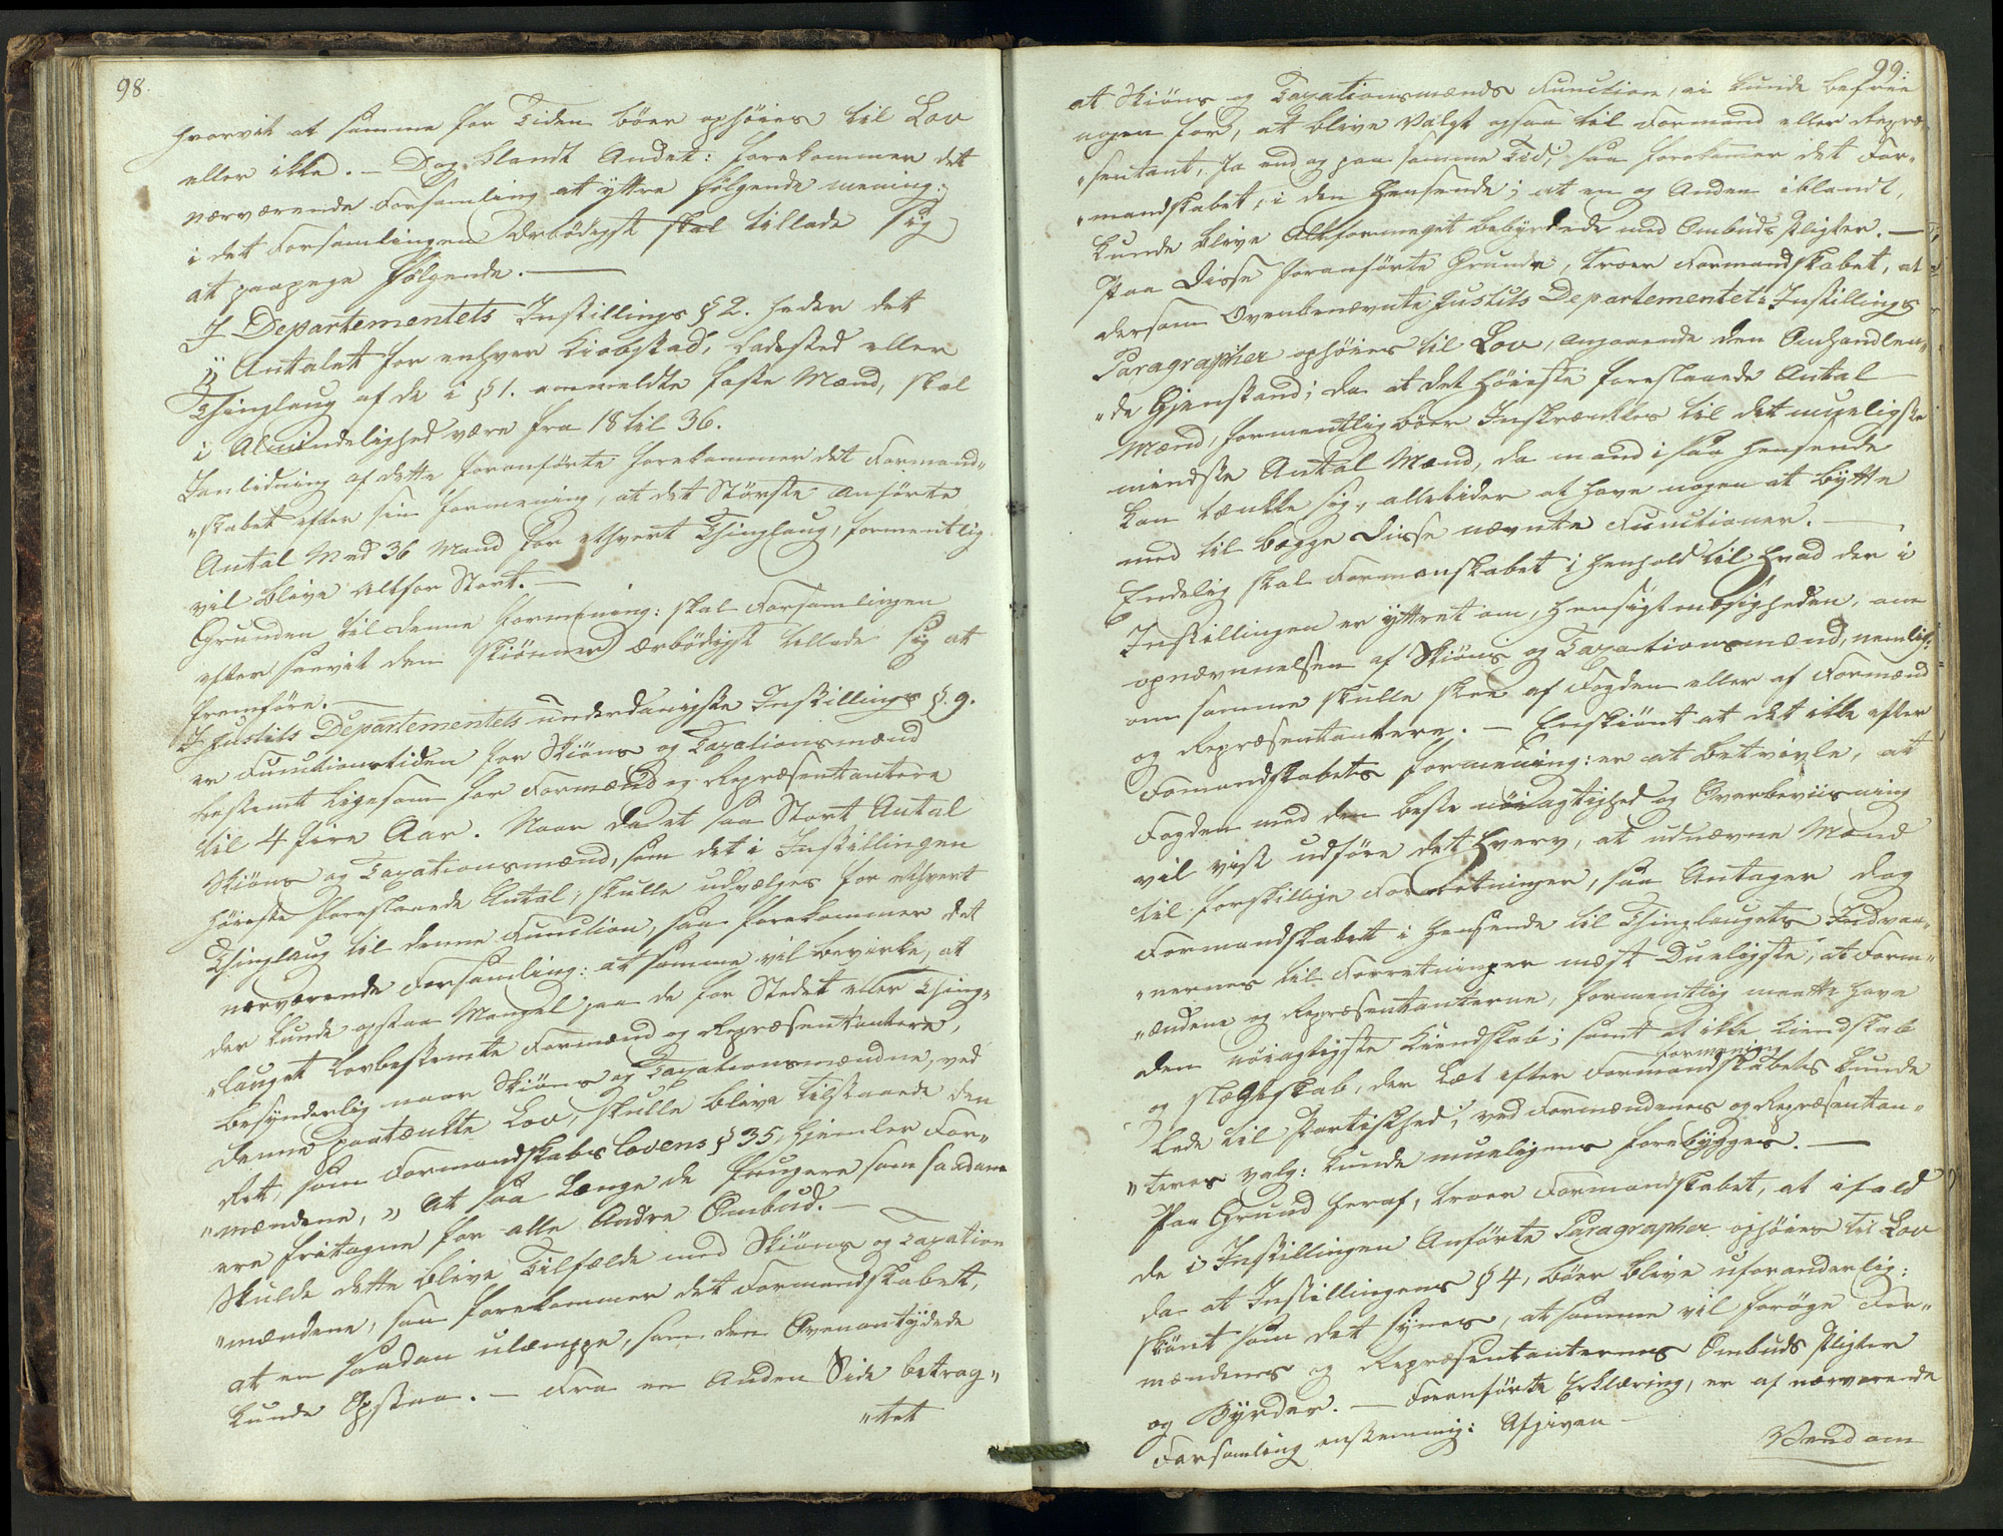 98.
hvorvit at samme for Tiden böer ophöies til Lov
eller ikke. — Dog blandt Andet: forekommer det
nærværende Forsamling at yttre følgende mening;
i det Forsamlingen Ærbödigst skal tillade sig
at paapege Følgende. —
I Departementets Instillings § 2. heder det
„ Antalet for enhver Kiøbstad, Ladested eller
Thinglaug af de i § 1. ommeldte faste Mænd, skal
i Almindelighed være fra 18 til 36.
I anledning af dette foranförte forekommer det Formand„
„skabet efter sin formening, at det Störste anförte
Antal Med 36 Mand for ethvert Thinglaug, formentlig
vil blive altfor Stort. —
Grunden til denne formening: skal Forsamlingen
efter saavit den skiönner ærbödigst tillade sig at
fremföre. —
I Justits Departementets underdanigste Instillings § 9.
er Functionstiden for Skiöns og Taxationsmænd
bestemt ligesom for Formænd og Repræsentantere
til 4 fire Aar. Naar da et saa Stort Antal
Skiöns og Taxationsmænd, som det i Instillingen
höieste foreslaaede Antal, skulle udvælges for ethvert
Thinglaug til denne Function, saa forekommer det
nærværende Forsamling: at samme vil bevirke, at
der kunde opstaa Mangel paa de for Stedet eller Thing„
„lauget Lovbestemte Formænd og Repræsentantere,
besynderlig naar Skiöns og Taxationsmændne, ved
denne paatænkte Lov, skulle blive tilstaaede den
Ret, som Formandskabs Lovens § 35, hjemler For„
„mændene, „ At saa Længe de fungere som saadane
ere fritagne for alle Andre Ombud. —
Skulde dette blive Tilfælde med Skiöns og Taxation
„mændene, saa forekommer det Formandskabet,
at en saadan ulæmppe, som den Ovenantydede
kunde Opstaa. — Fra en Anden Side betrag„
„tet
99.
at Skiöns og Taxationsmænds Function, ei kunde befrie
nogen for, at blive Valgt ogsaa til Formand eller Repræ„
„sentant, ja end og paa samme Tid; saa forekomer det For„
„mandskabet, i den Hensende; at en og Anden iblandt,
kunde blive Altformeget bebyrdede med Ombuds Pligter. —
Paa Disse foranförte Grunde, troer Formandskabet, at
dersom Ovenbenævnte Justits Departementet: Instillings
Paragrapher ophöies til Lov, angaaende den Omhandlen„
„de Gjenstand; da at det Höieste foreslaaede Antal
Mænd, formentlig böer Inskrænkes til det mueligste
mindste Antal Mænd, da mand i saa Hensende
kan tænkke sig, alletider at have nogen at bytte
med til begge Disse nævnte Functioner. —
Endelig skal Formanskabet i Henhold til Hvad der i
Instillingen er yttret om, Hensigtmæsigheden, om
opnævnnelsen af Skiöns og Taxationsmænd, nemlig:
om samme skulle skee af Fogden eller af Formænd
og Repræsentantere. — Enskiönt at det ikke efter
Fomandskabets formening: er at betvivle, at
Fogden med den beste nöiagtighed og Overbeviisning
vil vist udföre det Hverv, at udnævne Mænd
til forskillige Forretninger, saa Antager dog
Formandskabet i Hensende til Thinglaugets Indvaa„
„nernes til Forretninger mest Dueligste, at Form„
„ændene og Repræsentanterne, formentlig maatte have
den nöiagtigste Kiendskab; samt at ikke Kiendskab
og slægtskab, der let efter Formandskabets formening kunde
lede til Partiskhed, ved Formændenes og Repræsentan„
„teres valg: kunde mueligens forebygges. —
Paa Grund heraf, troer Formandskabet, at ifald
de i Instillingen Anförte Paragrapher ophöies til Lov
da at Instillingens § 4, böer blive uforanderlig:
skönt som det synes, at samme vil foröge For„
mændenes og Repræsentanternes Ombuds Pligter
og Byrder. — Foranförte Erklæring, er af nærværende
Forsamling enstemmig: Afgiven —
Vend om